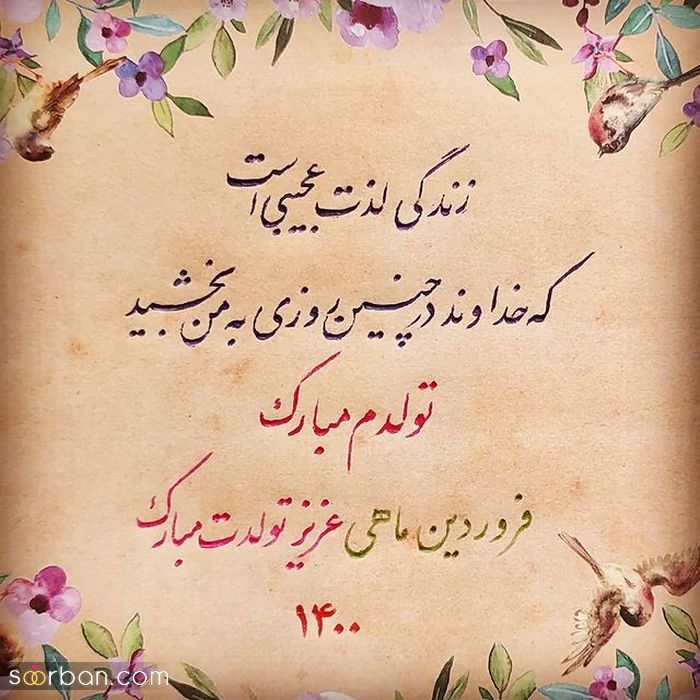 زندگی لذت عجیبی است
که خداوند در چنین روزی به من بخشید
تولدم مبارک
فروردین ماهی عزیز تولدت مبارک
۱۴۰۰
soorban.com